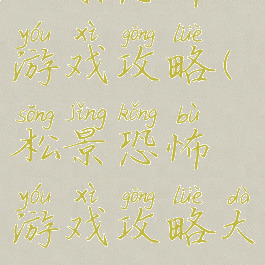 yóu xì gōng lüè
游戏攻略(
sōng jǐng kǒng bù
松景恐怖
yóu xì gōng lüè dà
游戏攻略大